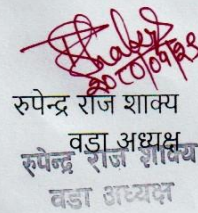 २०८०/०१/२९
रुपेन्द्र राज शाक्य
वडा अध्यक्ष
रुपेन्द्र राज शाक्य
वडा अध्यक्ष